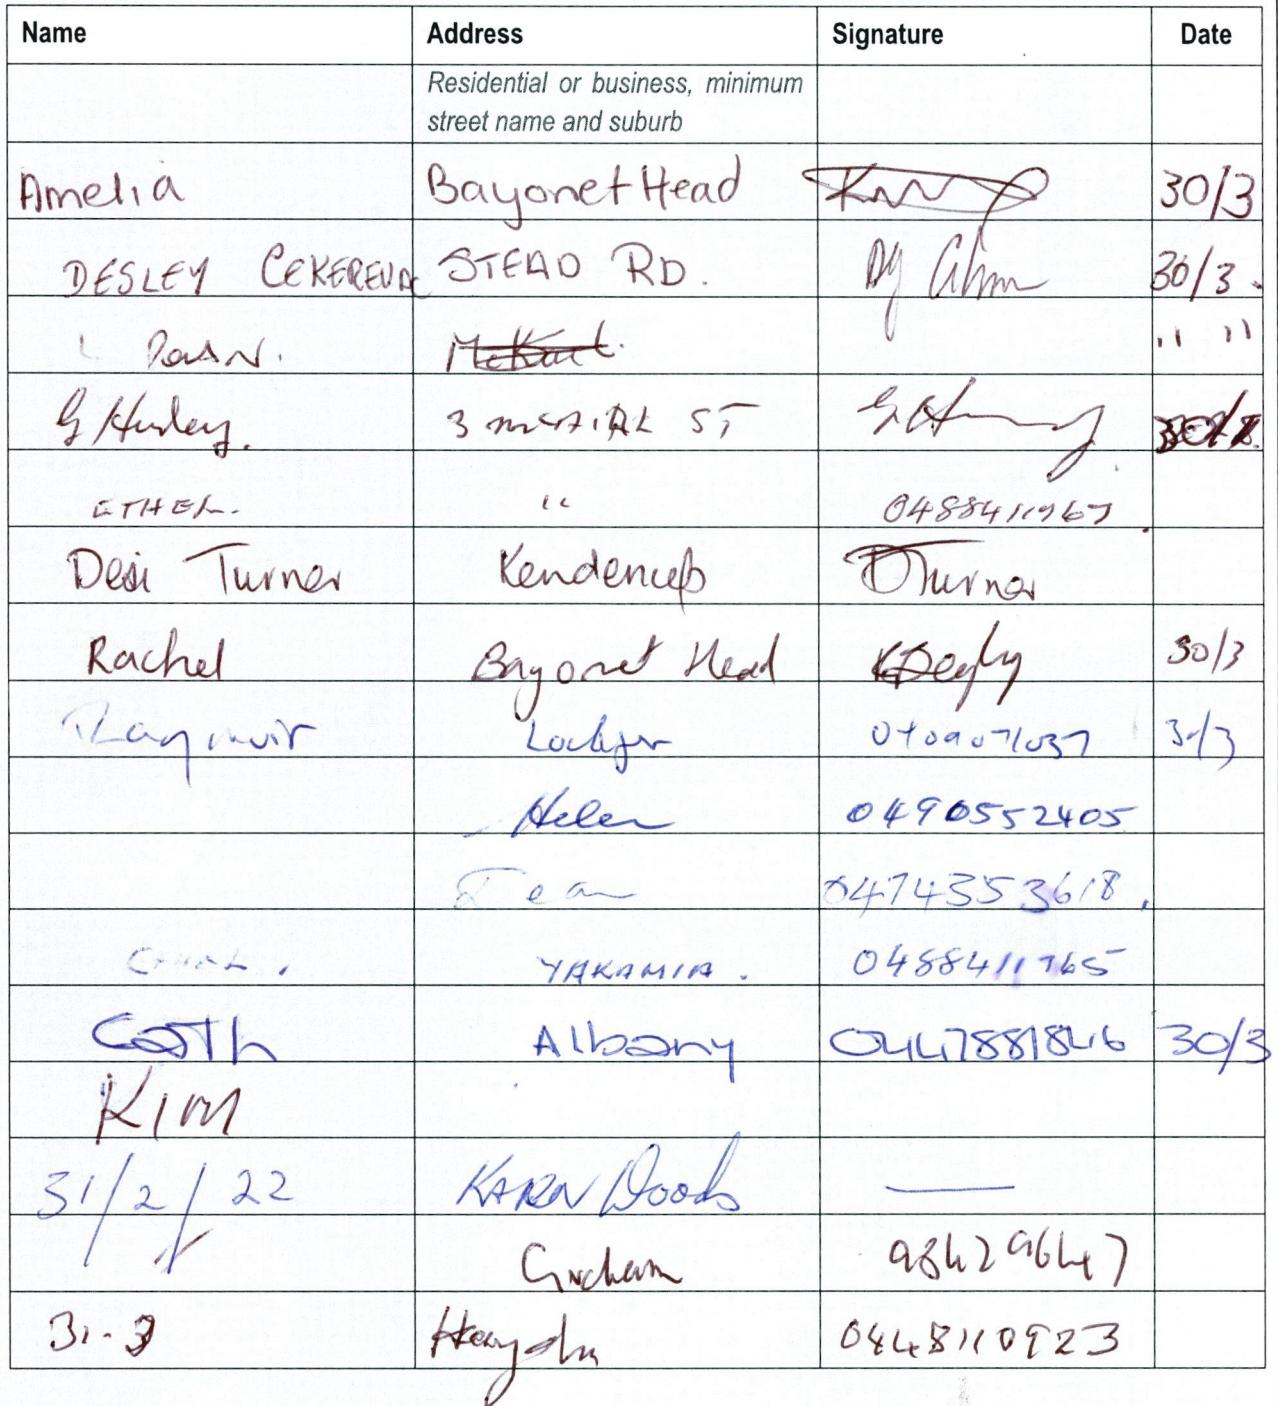 Name Address Signature Date
Residential or business, minimum
street name and suburb
Amelia Bayonet Head 30/3
DESLEY CEKEREVAC STEAD RD. 30/3.
" "
G Hurley. 3 ST
ETHEL. "
Desi Turner Kendenup DTurner
Rachel Bayonet Head 30/3
Ray muir Lockyer 30/3
Helen 0490552405
Jean 0474353618.
YAKAMIA. 0488411765
Cath Albany 0447881846 30/3
KIM
31/2/22 KARN Woods —
Graham 98429647
31-3 0448110923